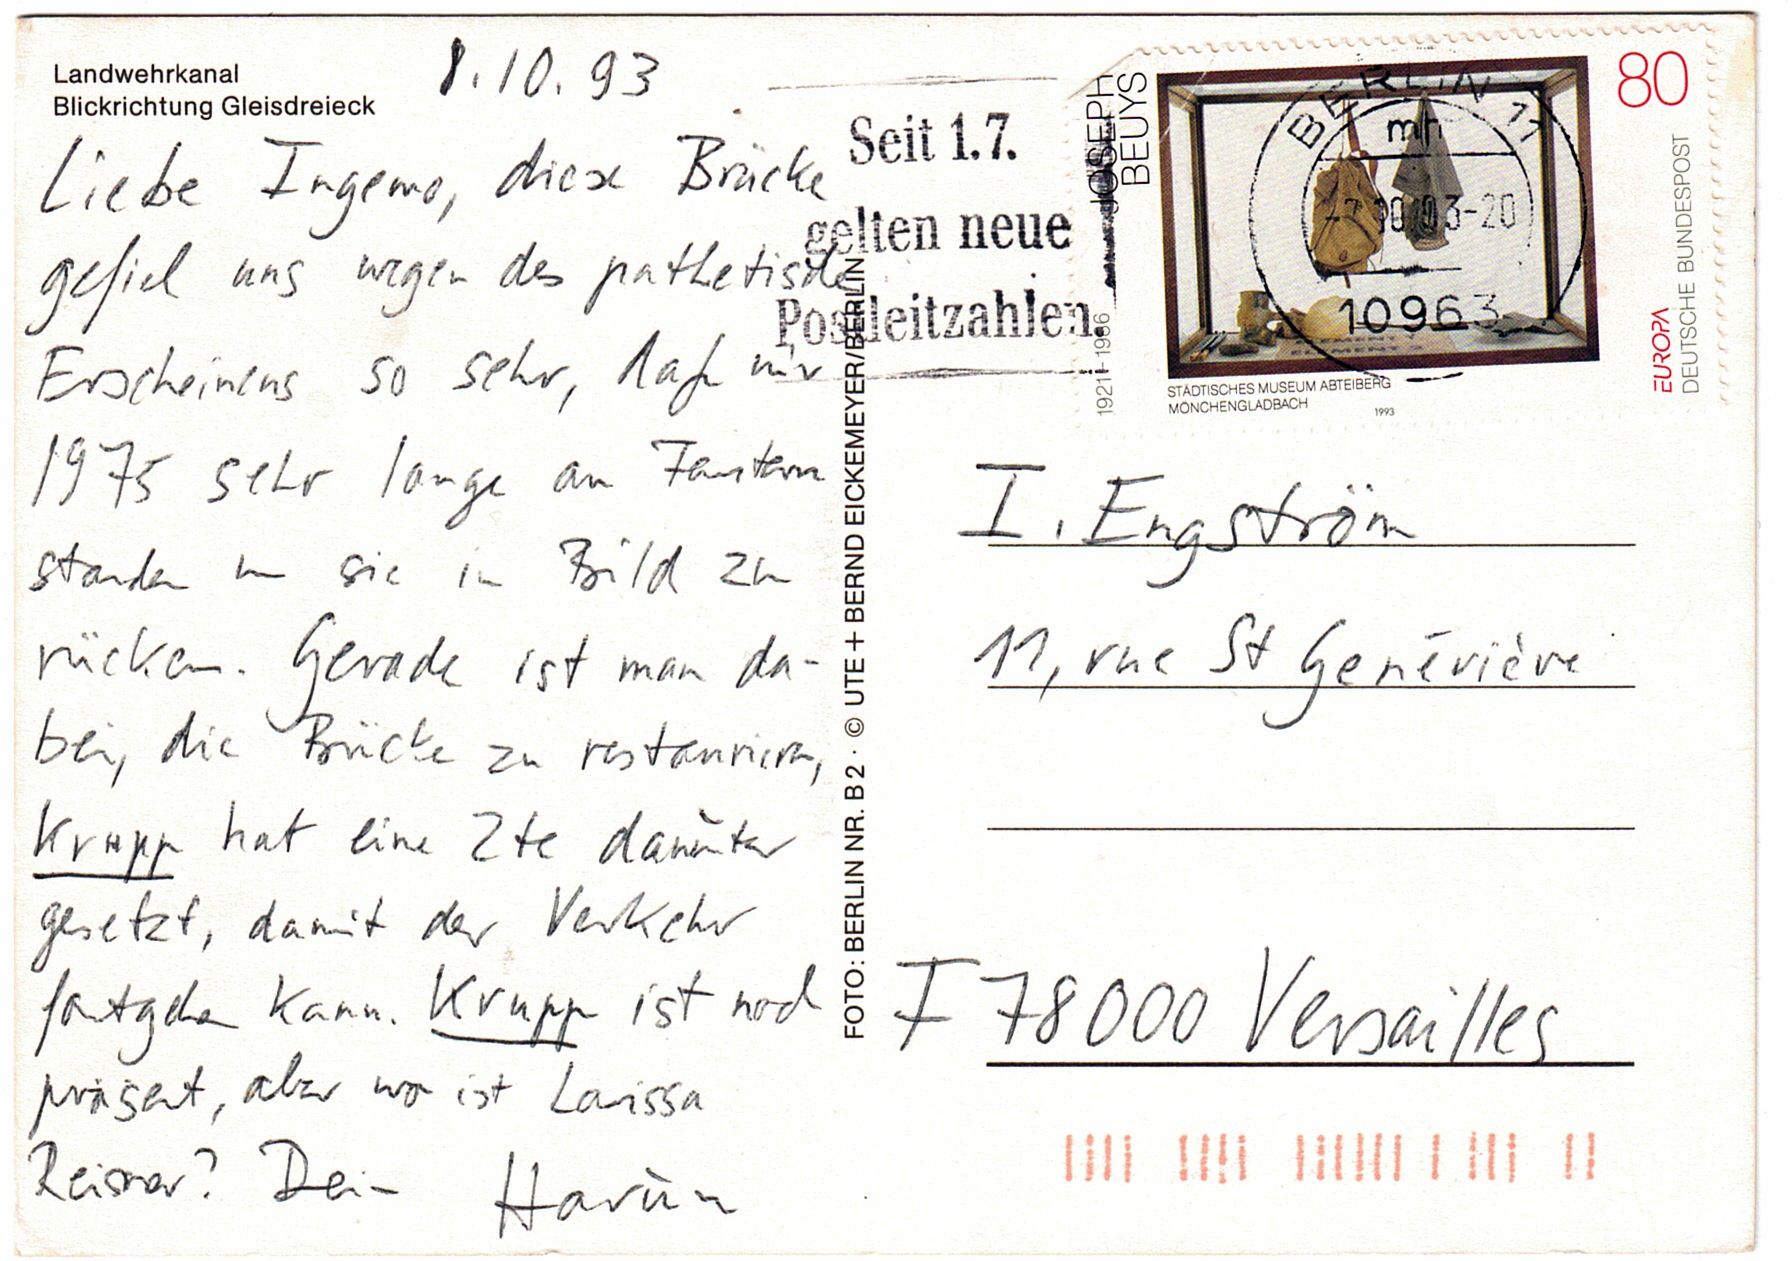 Landwehrkanal
Blickrichtung Gleisdreieck
8.10.93
Liebe Ingemo, diese Brücke
gefiel uns wegen des pathetische
Erscheinens so sehr, daß wir
1975 sehr lange an Fenstern
standen um sie in Bild zu
rücken. Gerade ist man da-
bei, die Brücke zu restaurieren,
Krupp hat eine 2te darunter
gesetzt, damit der Verkehr
fortgehen kann. Krupp ist noch
präsent, aber wo ist Larissa
Reisner? Dein Harun
FOTO: BERLIN NR. B 2 · © UTE + BERND EICKMEYER/BERLIN
Seit 1.7.
gelten neue
Postleitzahlen.
JOSEPH
BEUYS
1921–1986
80
BERLIN 11
mn
10.93-20
10963
STÄDTISCHES MUSEUM ABTEIBERG
MÖNCHENGLADBACH
1993
EUROPA
DEUTSCHE BUNDESPOST
I. Engström
11, rue St Généviève
F 78000 Versailles